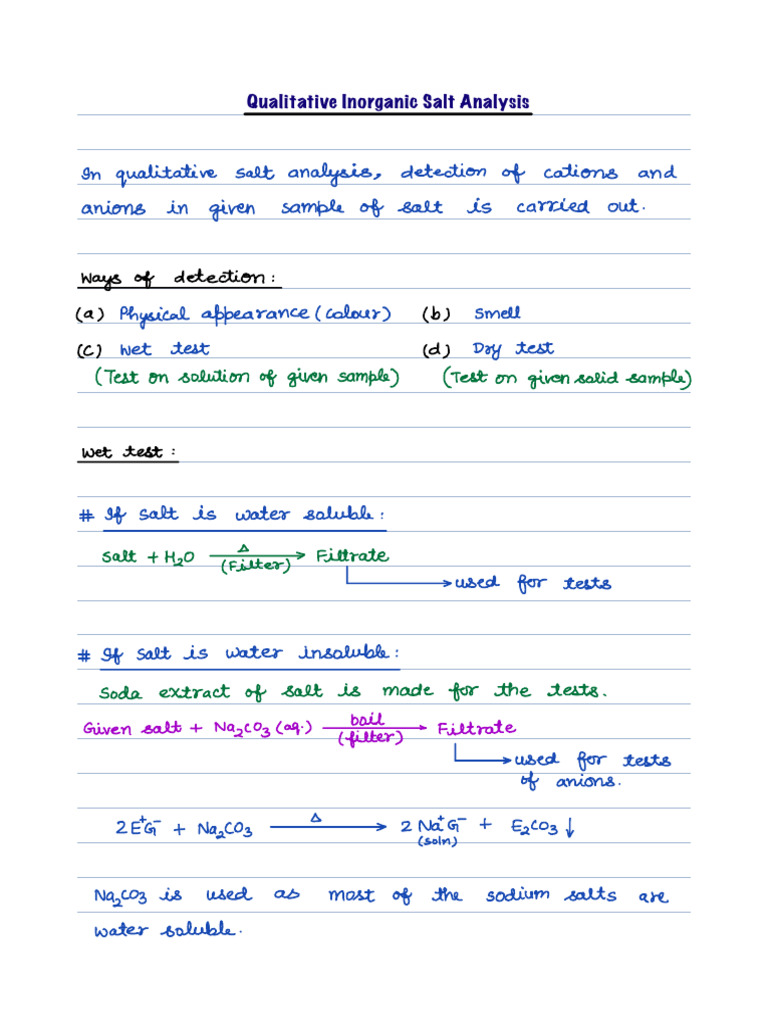 Qualitative Inorganic Salt Analysis
In qualitative salt analysis, detection of cations and
anions in given sample of salt is carried out.
Ways of detection:
(a) Physical appearance (colour) (b) Smell
(c) Wet test (d) Dry test
(Test on solution of given sample) (Test on given solid sample)
Wet test:
# If salt is water soluble:
Salt + H₂O —Δ (Filter)→ Filtrate
↳ used for tests
# If salt is water insoluble:
Soda extract of salt is made for the tests.
Given salt + Na₂CO₃ (aq.) —boil (filter)→ Filtrate
↳ used for tests
of anions.
2E⁺G⁻ + Na₂CO₃ —Δ→ 2Na⁺G⁻ (soln) + E₂CO₃↓
Na₂CO₃ is used as most of the sodium salts are
water soluble.